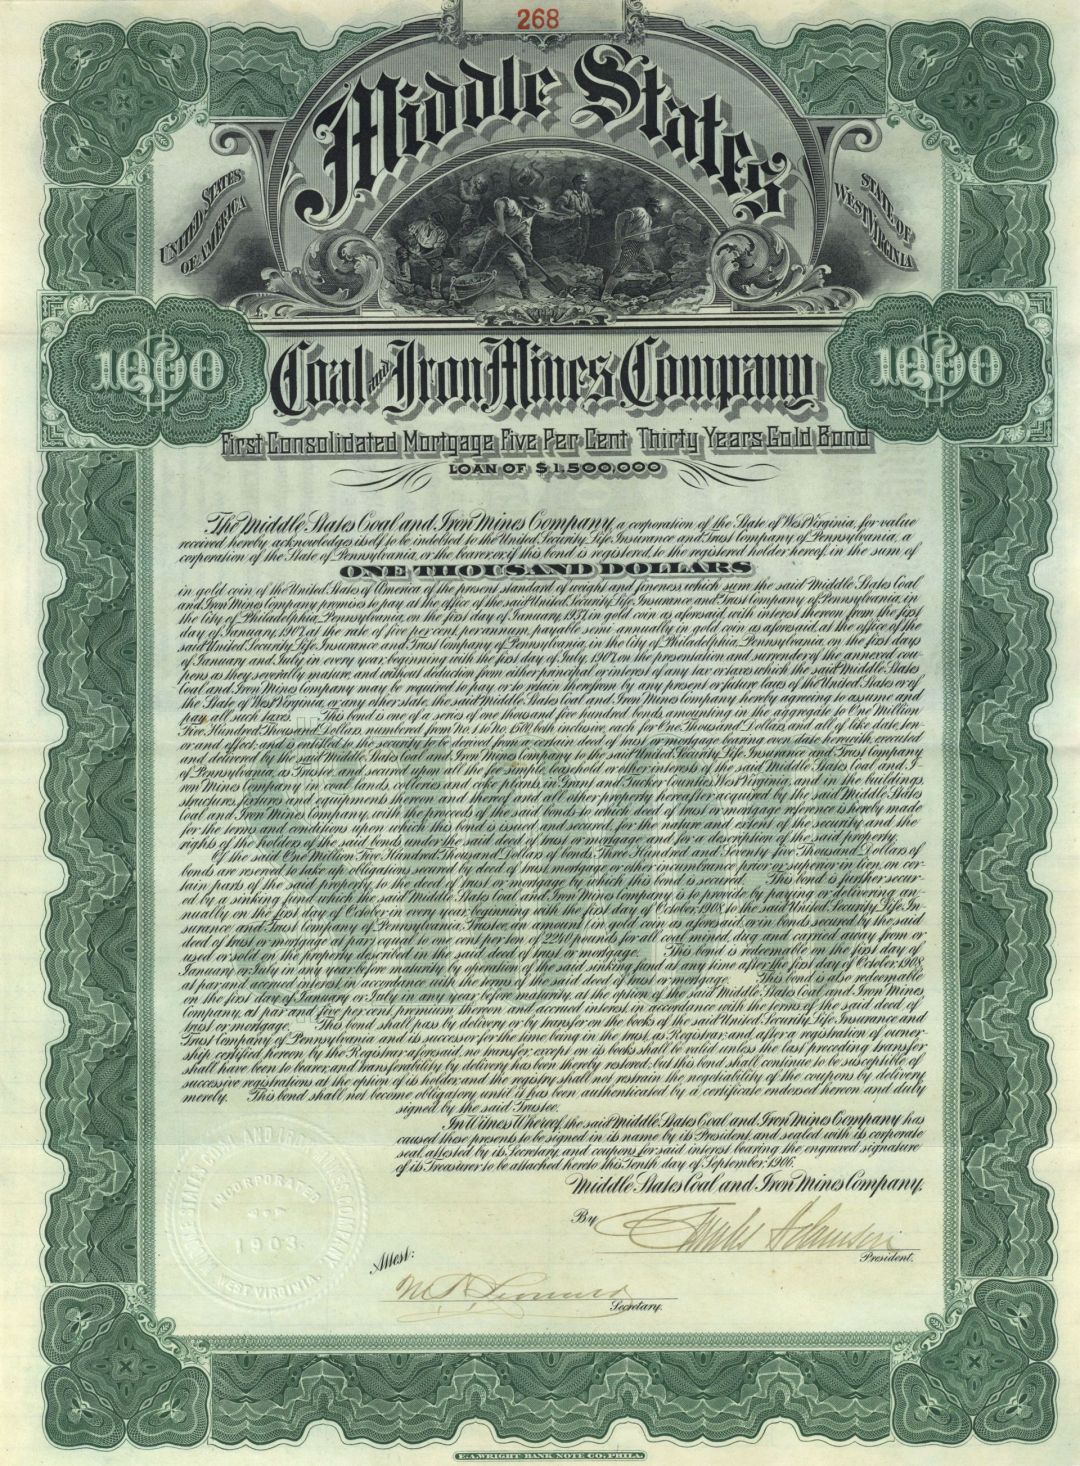 268
Middle States
UNITED STATES
OF AMERICA
STATE OF
WEST VIRGINIA
1000
1000
Coal and Iron Mines Company
First Consolidated Mortgage Five Per Cent Thirty Years Gold Bond
LOAN OF $1,500,000
The Middle States Coal and Iron Mines Company, a corporation of the State of West Virginia, for value
received, hereby acknowledges itself to be indebted to the United Security Life Insurance and Trust Company of Pennsylvania, a
corporation of the State of Pennsylvania, or the bearer, or, if this bond is registered, to the registered holder hereof, in the sum of
ONE THOUSAND DOLLARS
in gold coin of the United States of America of the present standard of weight and fineness, which sum the said Middle States Coal
and Iron Mines Company promises to pay at the office of the said United Security Life Insurance and Trust Company of Pennsylvania, in
the City of Philadelphia, Pennsylvania, on the first day of January, 1937, in gold coin as aforesaid, with interest thereon from the first
day of January, 1907, at the rate of five per cent. per annum, payable semi annually in gold coin as aforesaid, at the office of the
said United Security Life Insurance and Trust Company of Pennsylvania, in the City of Philadelphia, Pennsylvania, on the first days
of January and July in every year, beginning with the first day of July, 1907, on the presentation and surrender of the annexed cou-
pons as they severally mature, and without deduction from either principal or interest of any tax or taxes which the said Middle States
Coal and Iron Mines Company may be required to pay or to retain therefrom by any present or future laws of the United States or of
the State of West Virginia, or any other state, the said Middle States Coal and Iron Mines Company hereby agreeing to assume and
pay all such taxes. This bond is one of a series of one thousand five hundred bonds, amounting in the aggregate to One Million
Five Hundred Thousand Dollars, numbered from No. 1 to No. 1500, both inclusive, each for One Thousand Dollars, and all of like date, ten-
or and effect, and is entitled to the security to be derived from a certain deed of trust or mortgage bearing even date herewith, executed
and delivered by the said Middle States Coal and Iron Mines Company to the said United Security Life Insurance and Trust Company
of Pennsylvania, as Trustee, and secured upon all the fee simple, leasehold or other interests of the said Middle States Coal and I-
ron Mines Company in coal lands, collieries and coke plants, in Grant and Tucker Counties, West Virginia, and in the buildings,
structures, fixtures and equipments thereon and thereof, and all other property hereafter acquired by the said Middle States
Coal and Iron Mines Company, with the proceeds of the said bonds to which deed of trust or mortgage reference is hereby made
for the terms and conditions upon which this bond is issued and secured, for the nature and extent of the security and the
rights of the holders of the said bonds under the said deed of trust or mortgage and for a description of the said property.
Of the said One Million Five Hundred Thousand Dollars of bonds, Three Hundred and Seventy five Thousand Dollars of
bonds are reserved to take up obligations secured by deed of trust, mortgage or other incumbrance prior or superior in lien, on cer-
tain parts of the said property, to the deed of trust or mortgage by which this bond is secured. This bond is further secur-
ed by a sinking fund which the said Middle States Coal and Iron Mines Company is to provide by paying or delivering an-
nually on the first day of October in every year, beginning with the first day of October, 1908, to the said United Security Life In-
surance and Trust Company of Pennsylvania, Trustee, an amount (in gold coin as aforesaid, or in bonds secured by the said
deed of trust or mortgage at par) equal to one cent per ton of 2240 pounds for all coal mined, dug and carried away from or
used or sold on the property described in the said deed of trust or mortgage. This bond is redeemable on the first day of
January or July in any year before maturity by operation of the said sinking fund at any time after the first day of October, 1908,
at par and accrued interest, in accordance with the terms of the said deed of trust or mortgage. This bond is also redeemable
on the first day of January or July in any year before maturity, at the option of the said Middle States Coal and Iron Mines
Company, at par and five per cent premium thereon and accrued interest, in accordance with the terms of the said deed of
trust or mortgage. This bond shall pass by delivery or by transfer on the books of the said United Security Life Insurance and
Trust Company of Pennsylvania and its successor for the time being in the trust, as Registrar, and after a registration of owner-
ship certified hereon by the Registrar aforesaid, no transfer, except on its books shall be valid unless the last preceding transfer
shall have been to bearer, and transferability by delivery has been thereby restored; but this bond shall continue to be susceptible of
successive registrations at the option of its holder, and the registry shall not restrain the negotiability of the coupons by delivery
merely. This bond shall not become obligatory until it has been authenticated by a certificate endorsed hereon and duly
signed by the said Trustee.
In Witness Whereof, the said Middle States Coal and Iron Mines Company has
caused these presents to be signed in its name by its President, and sealed with its corporate
seal, attested by its Secretary, and coupons for said interest bearing the engraved signature
of its Treasurer to be attached hereto this Tenth day of September, 1906.
Middle States Coal and Iron Mines Company,
By
President.
Attest:
Secretary.
MIDDLE STATES COAL AND IRON MINES COMPANY
INCORPORATED
1903.
WEST VIRGINIA.
E.A. WRIGHT BANK NOTE CO. PHILA.